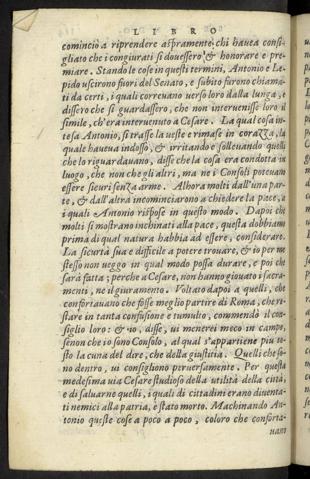 LIBRO
cominciò a riprendere aspramente, chi hauea consi-
gliato che i congiurati si douessero & honorare e pre-
miare. Stando le cose in questi termini, Antonio e Le-
pido uscirono fuori del Senato, e subito furono chiama-
ti da certi, i quali correuano verso loro dalla lunga, e
dissero che si guardassero, che non interuenisse loro il
simile, ch'era interuenuto a Cesare. La qual cosa in-
tesa Antonio, si trasse la ueste e rimase in corazza, la
quale haueua indosso, & irritando e solleuando quelli
che lo riguardauano, disse che la cosa era condotta in
luogo, che non che gli altri, ma ne i Consoli poteuano
essere sicuri senza arme. Alhora molti dall'una par-
te, & dall'altra incominciarono a chiedere la pace, a
i quali Antonio rispose in questo modo. Dapoi che
molti si mostrano inchinati alla pace, questa dobbiamo
prima di qual natura habbia ad essere, considerare.
La sicurtà sua e difficile a potere trouare, & io per me
stesso non ueggo in qual modo possa durare, e poi che
sarà fatta; perche a Cesare, non hanno giouato i sacra-
menti, ne il giuramento. Voltato dapoi a quelli, che
confortauano che fosse meglio partire di Roma, che ri-
stare in tanta confusione e tumulto, commendò il con-
siglio loro: & io, disse, ui menerei meco in campo,
se non che io sono Consolo, al qual s'appartiene piu to-
sto la cura del dire, che della giustitia. Quelli che so-
no dentro, ui consigliono peruersamente. Per questa
medesima uia Cesare studioso della utilità della città,
e di saluarne quelli, i quali di cittadini erano diuenta-
ti nemici alla patria, è stato morto. Machinando An-
tonio queste cose a poco a poco, coloro che conforta-
uano